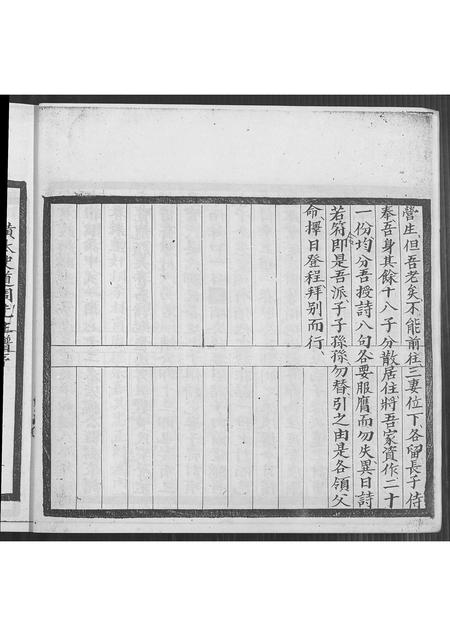 營生、但吾老矣、不能前往三妻位下、各留長子侍
奉、吾身其餘十八子分散居住將吾家資作二十
一份均分吾授詩八句各要服膺而勿失異日詩
若符即是吾派子子孫孫勿替、引之由是各領父
命、擇日登程、拜別而行、